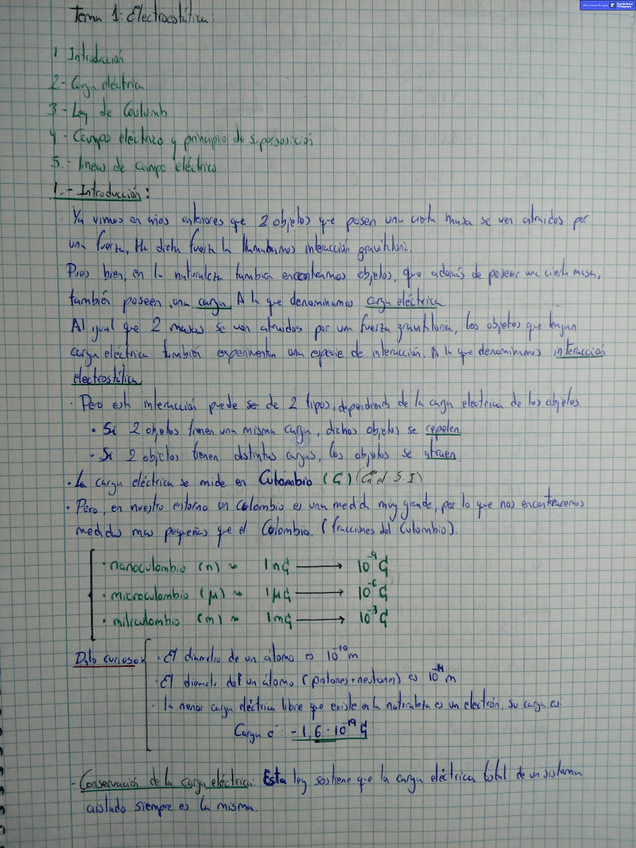 Tema 1: Electrostática:
1 Introducción
2- Carga eléctrica
3- Ley de Coulomb
4- Campo eléctrico y principio de superposición
5.- líneas de campo eléctrico
1.- Introducción:
Ya vimos en años anteriores que 2 objetos que poseen una cierta masa se ven atraidos por
una fuerza, Ha dicha fuerza la llamabamos interacción gravitatoria.
Pues bien, en la naturaleza tambien encontramos objetos, que además de poseer una cierta masa,
también poseen, una carga. A la que denominamos carga eléctrica.
Al igual que 2 masas se ven atraidos por una fuerza gravitatoria, los objetos que tengan
carga eléctrica también experimentan una especie de interacción. A la que denominamos interacción
electrostática
· Pero esta interacción puede se de 2 tipos, dependiendo de la carga electrica de los objetos
· Si 2 objetos tienen una misma carga, dichos objetos se repelen
· Si 2 objetos tienen distintas cargas, los objetos se atraen.
· La carga eléctrica se mide en Culombio (C) (En el S I)
· Pero, en nuestro entorno un Culombio es una medida muy grande, por lo que nos encontraremos
medidas mas pequeñas que el Culombio. (fracciones del Culombio).
· nanoculombio (n) ~ 1nC → 10⁻⁹ C
· microculombio (μ) ~ 1μC → 10⁻⁶ C
· miliculombio (m) ~ 1mC → 10⁻³ C
Dato curioso:
· El diametro de un átomo es 10⁻¹⁰ m
· El diametro del un atomo (protones+neutrones) es 10⁻¹⁴ m
· la menor carga eléctrica libre que existe en la naturaleza es un electrón, su carga es:
Carga e⁻ -1,6·10⁻¹⁹ C
- Conservación de la carga eléctrica: Esta ley sostiene que la carga eléctrica total de un sistema
aislado siempre es la misma.